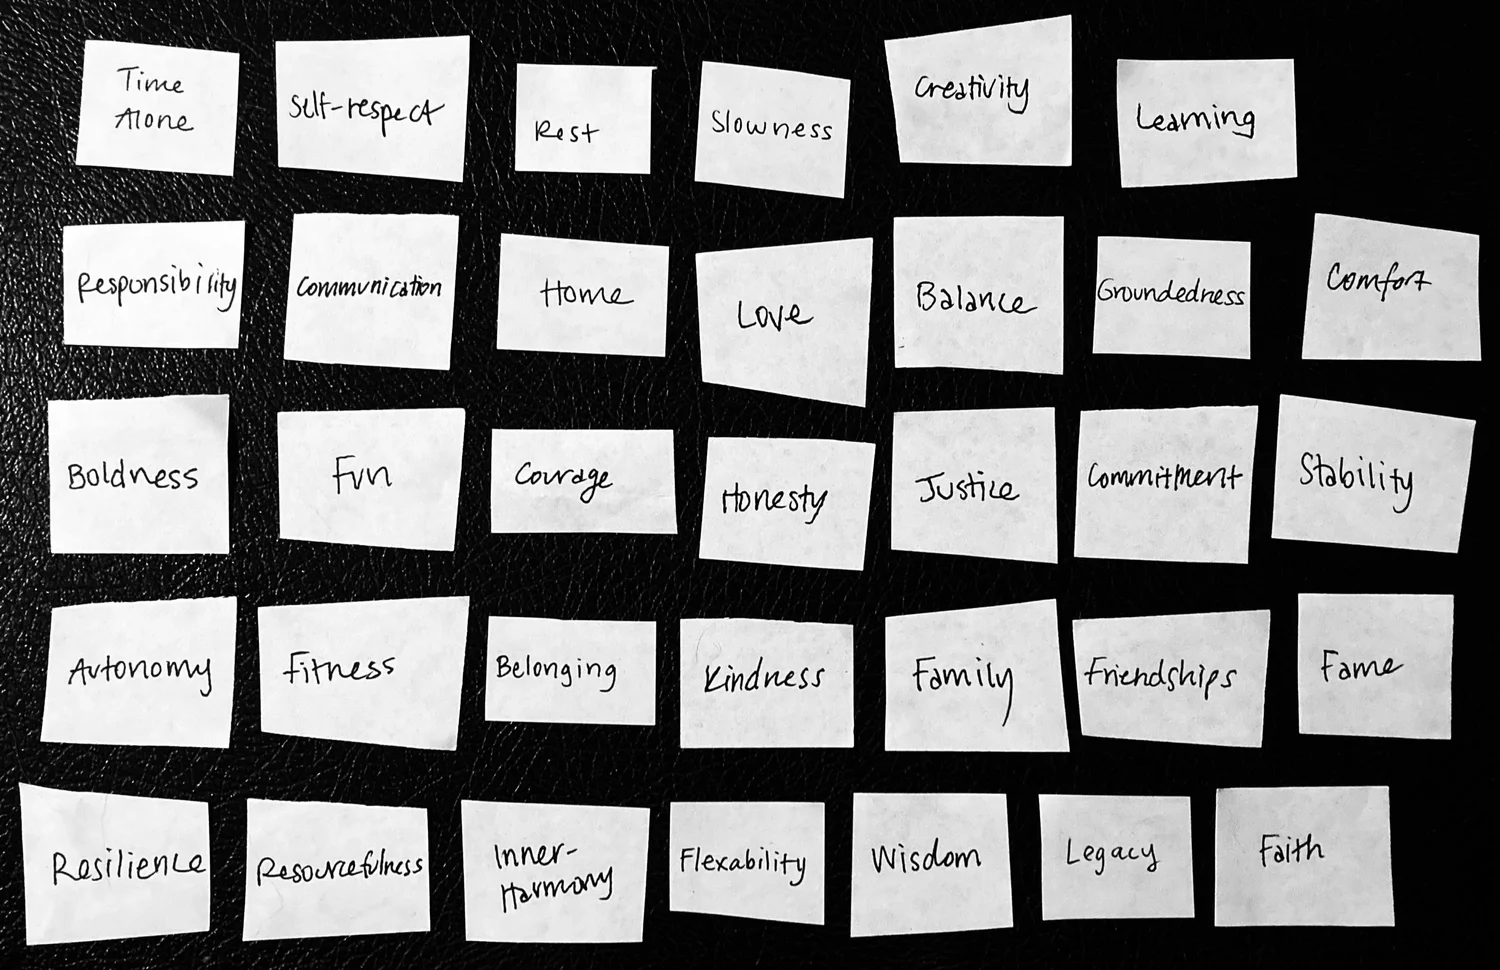 Time
Alone
Self-respect
Rest
Slowness
Creativity
Learning
Responsibility
Communication
Home
Love
Balance
Groundedness
Comfort
Boldness
Fun
Courage
Honesty
Justice
Commitment
Stability
Autonomy
Fitness
Belonging
Kindness
Family
Friendships
Fame
Resilience
Resourcefulness
Inner-
Harmony
Flexability
Wisdom
Legacy
Faith